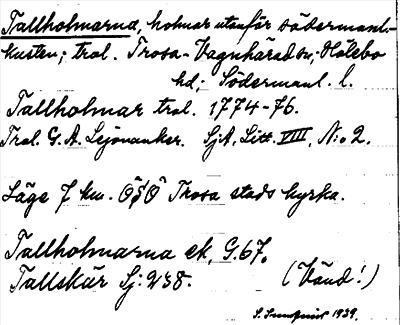 Tallholmarna, holmar utanför södermanl.-
kusten; tral. Trosa-Vagnhärad sn; Hölebo
hd; Södermanl. l.
Tallholmar tral. 1774-76.
Tral. G. A. Lejonanker. SjA, Litt. VIII, N:o 2.
Läge 7 km. OSO Trosa stads kyrka.
Tallholmarna ek. G. 67.
Tallskär Sj: 238. (Vänd!)
S. 1939.